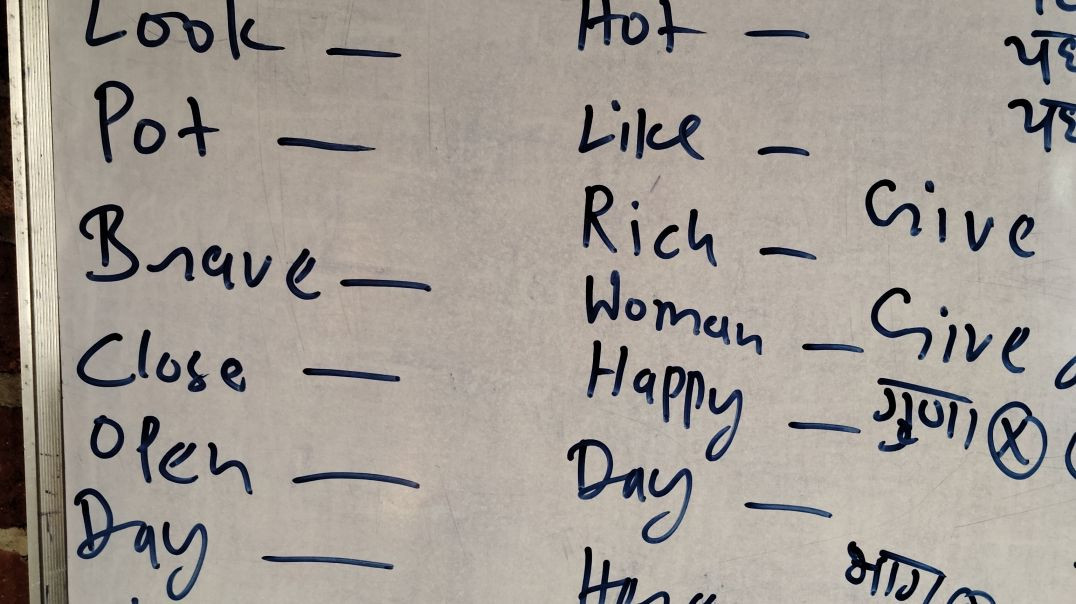 Look —
Pot —
Brave —
Close —
Open —
Day —
Hot —
Like —
Rich —
Woman —
Happy —
Day —
Give
Give
गुणा ⓧ
भाग